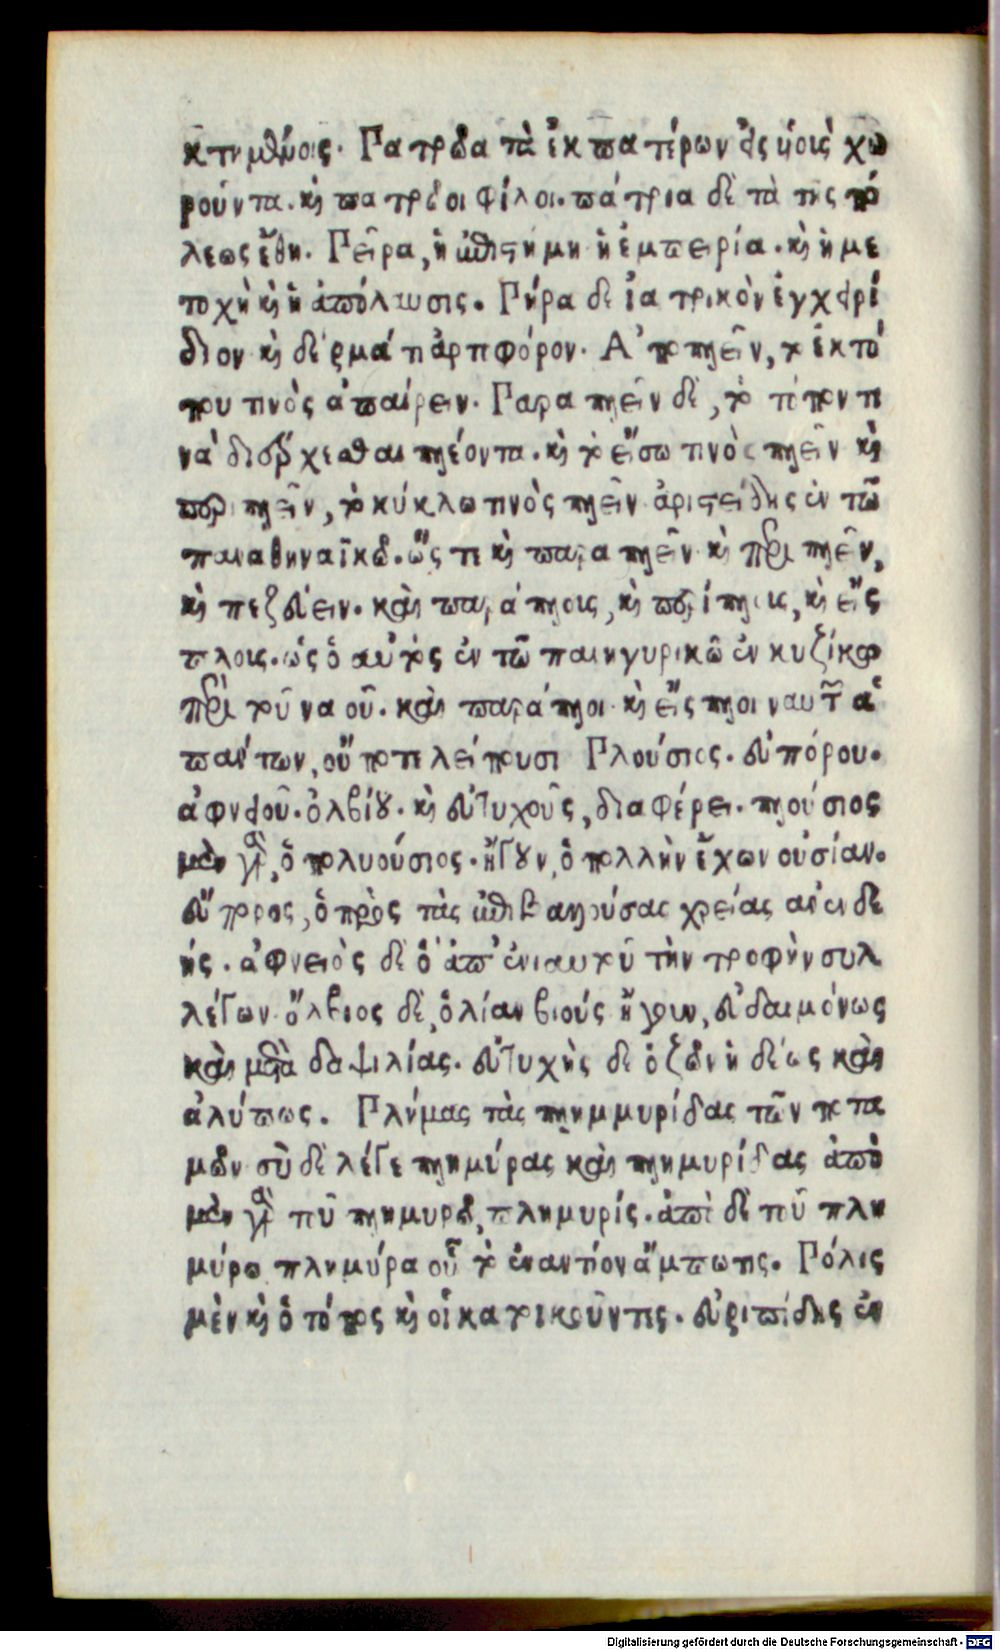 κτημένοις. Πατρῷα τὰ ἐκ πατέρων εἰς υἱοὺς χω
ροῦντα. καὶ πατρῷοι φίλοι. πάτρια δὲ τὰ τῆς πό
λεως ἔθη. Πεῖρα, ἡ ἐπιστήμη ἡ ἐμπειρία. καὶ ἡ με
τοχὴ καὶ ἡ ἀπόλαυσις. Πήρα δὲ ἰατρικὸν ἐγχειρί
διον καὶ δέρμά τι ἀρτοφόρον. Ἀποπλεῖν, τὸ ἐκ τό
που τινὸς ἀπαίρειν. Παραπλεῖν δὲ, τὸ τόπον τι
νὰ διέρχεσθαι πλέοντα. καὶ τὸ εἴσω τινὸς πλεῖν καὶ
περιπλεῖν, τὸ κύκλω τινὸς πλεῖν ἀριστείδης ἐν τῶ
παναθηναϊκῶ. ὥς τι καὶ παραπλεῖν καὶ περιπλεῖν,
καὶ πεζεύειν. καὶ παράπλοις, καὶ περίπλοις, καὶ εἴς
πλοις. ὡς ὁ αὐτὸς ἐν τῶ πανηγυρικῶ ἐν κυζίκῳ
περὶ τοῦ ναοῦ. καὶ παράπλοι καὶ εἴςπλοι ναυτῶν ἁ
πάντων, οὔποτε λείπουσι Πλούσιος. εὐπόρου.
ἀφνειοῦ. ὀλβίου. καὶ εὐτυχοῦς, διαφέρει. πλούσιος
μὲν γὰρ, ὁ πολυούσιος. ἤγουν, ὁ πολλὴν ἔχων οὐσίαν.
εὔπορος, ὁ πρὸς τὰς ἐπιβαλλούσας χρείας ἀνενδε
ής. ἀφνειὸς δὲ ὁ ἀπ' ἐνιαυτοῦ τὴν τροφὴν συλ
λέγων ὄλβιος δὲ, ὁ λίαν βιούς ἤγουν, εὐδαιμόνως
καὶ μετὰ δαψιλίας. εὐτυχὴς δὲ ὁ ζῶν ἡδέως καὶ
ἀλύπως. Πλήμας τὰς πλημμυρίδας τῶν ποτα
μῶν σὺ δὲ λέγε πλημύρας καὶ πλημυρίδας ἀπὸ
μὲν γὰρ τοῦ πλημυρῶ, πλημυρίς. ἀπὸ δὲ τοῦ πλη
μύρω πλημύρα οὗ τὸ ἐναντίον ἄμπωτις. Πόλις
μὲν καὶ ὁ τόπος καὶ οἱ κατοικοῦντες. εὐριπίδης ἐν
Digitalisierung gefördert durch die Deutsche Forschungsgemeinschaft - DFG